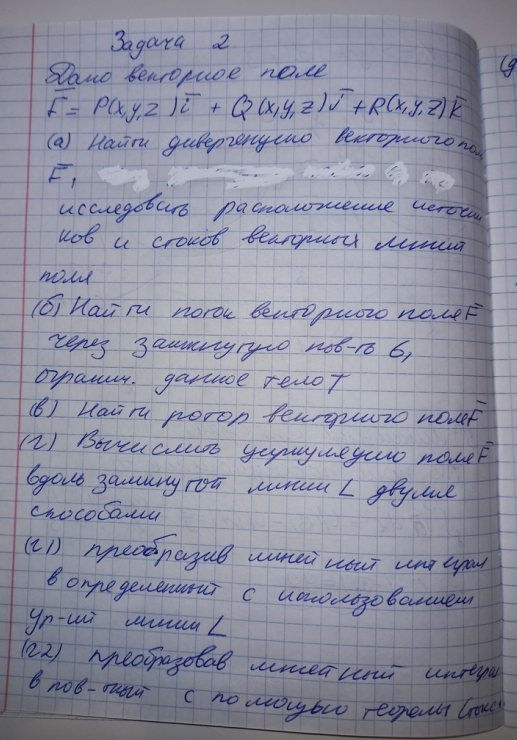 Задача 2
Дано векторное поле
F̄ = P(x,y,z) ī + Q(x,y,z) j̄ + R(x,y,z) k̄
(а) Найти дивергенцию векторного пол
F̄,
исследовать расположение источни
ков и стоков векторных линий
поля
(б) Найти поток векторного поля F̄
через замкнутую пов-ть б,
огранич. данное тело T
(в) Найти ротор векторного поля F̄
(г) Вычислить циркуляцию поля F̄
вдоль замкнутой линии L двумя
способами
(г1) преобразив линейный интеграл
в определенный с использованием
ур-ий линии L
(г2) преобразовав линейный интеграл
в пов-тный с помощью теоремы Стокс